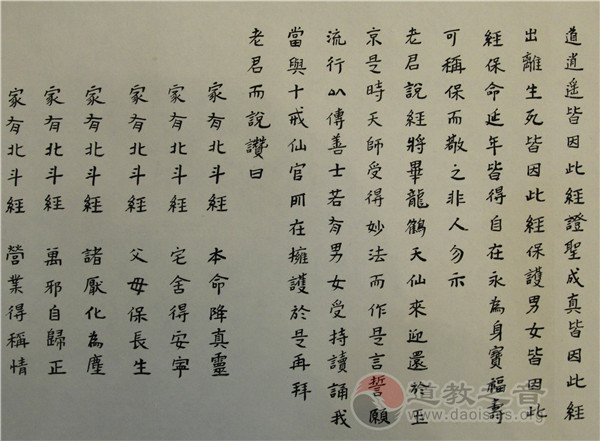 道逍遥皆因此經證聖成真皆因此經
出離生死皆因此經保護男女皆因此
經保命延年皆得自在永為身寶福壽
可稱保而敬之非人勿示
老君說經將畢龍鶴天仙來迎還於玉
京是時天師受得妙法而作是言誓願
流行以傳善士若有男女受持讀誦我
當與十戒仙官所在擁護於是再拜
老君而說讚曰
家有北斗經 本命降真靈
家有北斗經 宅舍得安寧
家有北斗經 父母保長生
家有北斗經 諸厭化為塵
家有北斗經 萬邪自歸正
家有北斗經 營業得稱情
道教之音
www.daoisms.org